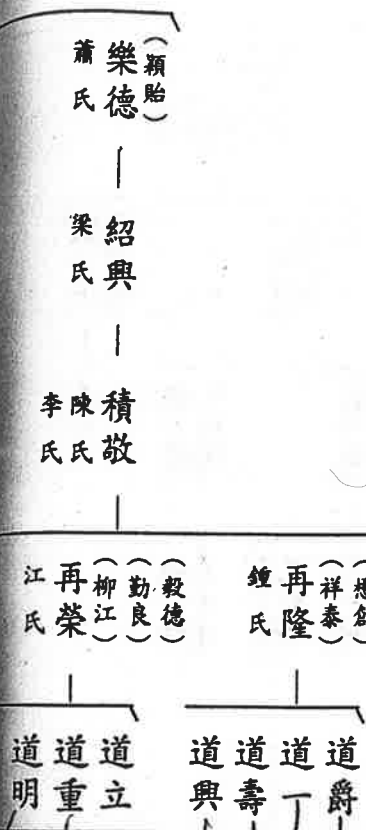 （穎貽）
樂德
蕭氏
紹興
梁氏
積敬
陳氏
李氏
（祥泰）
再隆
鍾氏
（毅德）
（勤良）
（柳江）
再榮
江氏
道爵
道一
道壽
道興
道立
道重
道明